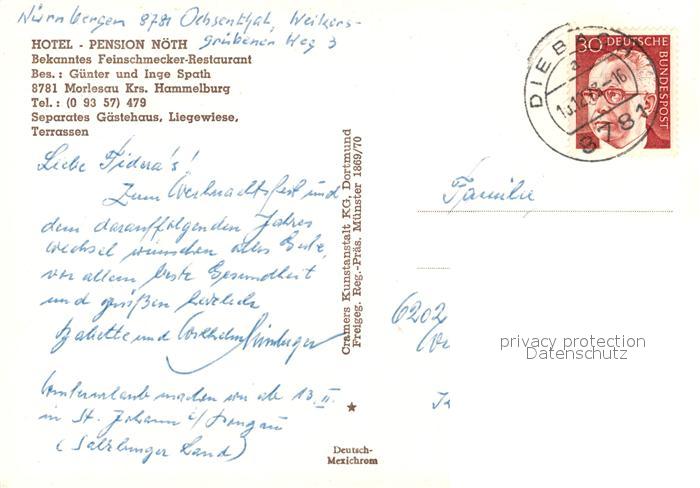 Nürnberger 8781 Ochsenthal, Weikers-
grubener Weg 3
HOTEL - PENSION NÖTH
Bekanntes Feinschmecker-Restaurant
Bes.: Günter und Inge Spath
8781 Morlesau Krs. Hammelburg
Tel.: (0 93 57) 479
Separates Gästehaus, Liegewiese,
Terrassen
Liebe Fidora's!
Zum Weihnachtsfest und
dem darauffolgenden Jahres
wechsel wünschen alles Gute,
vor allem beste Gesundheit
und grüßen herzlich
Babette und Wilhelm Nürnberger
Winterurlaub machen wir ab 13. II.
in St. Johann i/ Pongau
(Salzburger Land)
Cramers Kunstanstalt KG, Dortmund
Freigeg. Reg.-Präs. Münster 1869/70
Deutsch-
Mexichrom
30 DEUTSCHE
BUNDESPOST
DIEBACH
a
8781
Familie
6202
privacy protection
Datenschutz